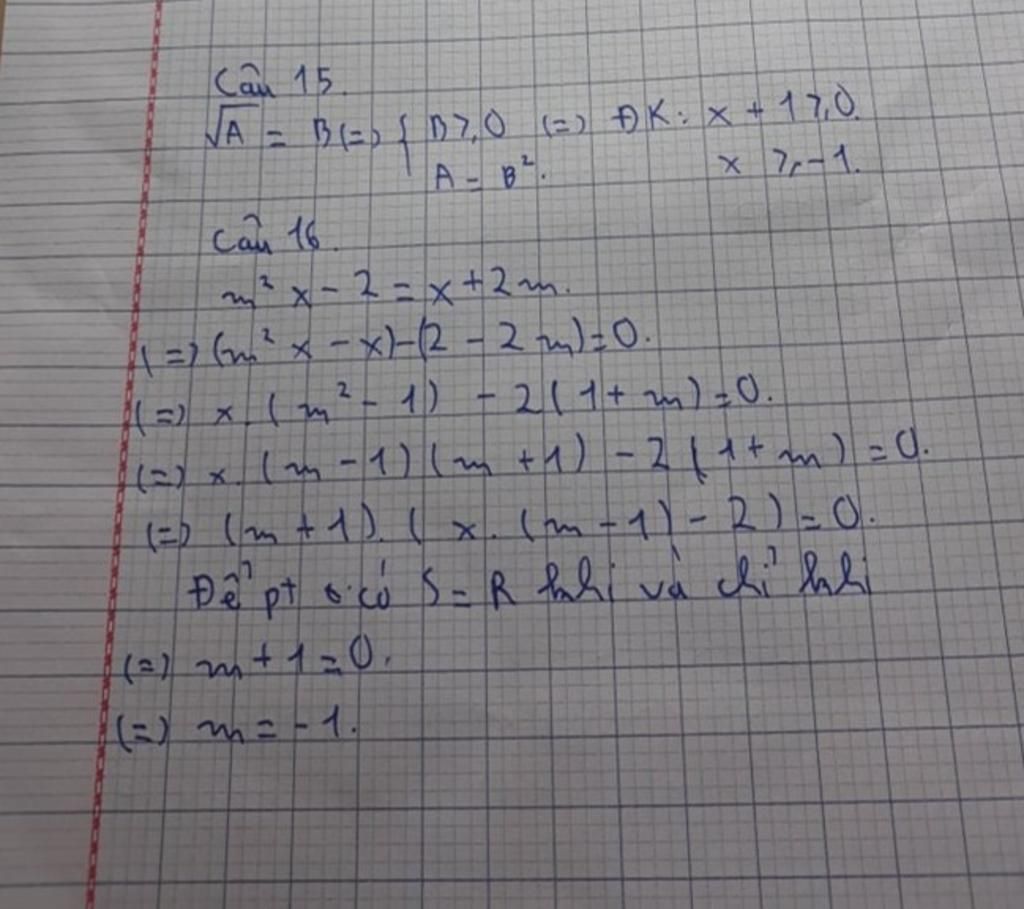 Câu 15.
√A = B (=) { B ⩾ 0 (=) ĐK: x + 1 ⩾ 0.
A = B². x ⩾ -1.
Câu 16.
m² x - 2 = x + 2m.
(=) (m² x - x) - (2 - 2m) = 0.
(=) x. (m² - 1) - 2(1 + m) = 0.
(=) x. (m - 1)(m + 1) - 2(1 + m) = 0.
(=) (m + 1). (x. (m - 1) - 2) = 0.
Để pt có S = R khi và chỉ khi
(=) m + 1 = 0.
(=) m = -1.